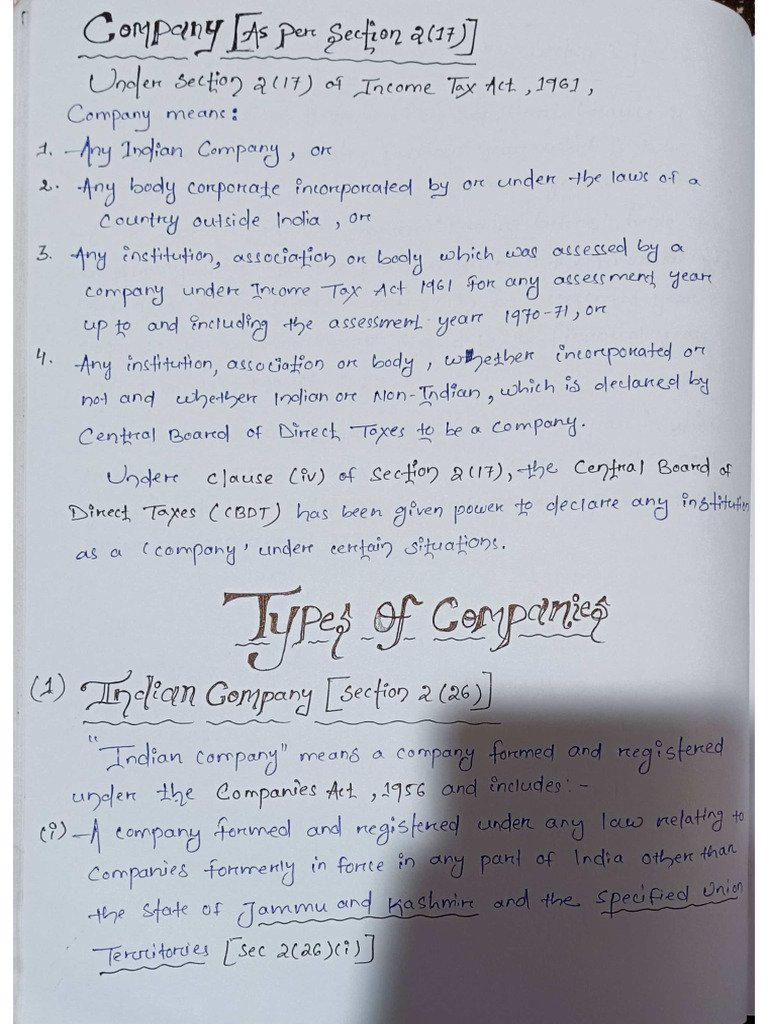 Company [As per Section 2(17)]
Under Section 2(17) of Income Tax Act, 1961,
Company means:
1. Any Indian Company, or
2. Any body corporate incorporated by or under the laws of a
country outside India, or
3. Any institution, association or body which was assessed by a
company under Income Tax Act 1961 for any assessment year
up to and including the assessment year 1970-71, or
4. Any institution, association or body, whether incorporated or
not and whether Indian or Non-Indian, which is declared by
Central Board of Direct Taxes to be a company.
Under clause (iv) of Section 2(17), the Central Board of
Direct Taxes (CBDT) has been given power to declare any institution
as a 'company' under certain situations.
Types of Companies
(1) Indian Company [Section 2(26)]
"Indian company" means a company formed and registered
under the Companies Act, 1956 and includes:-
(i) A company formed and registered under any law relating to
companies formerly in force in any part of India other than
the state of Jammu and Kashmir and the Specified Union
Territories [Sec 2(26)(i)]